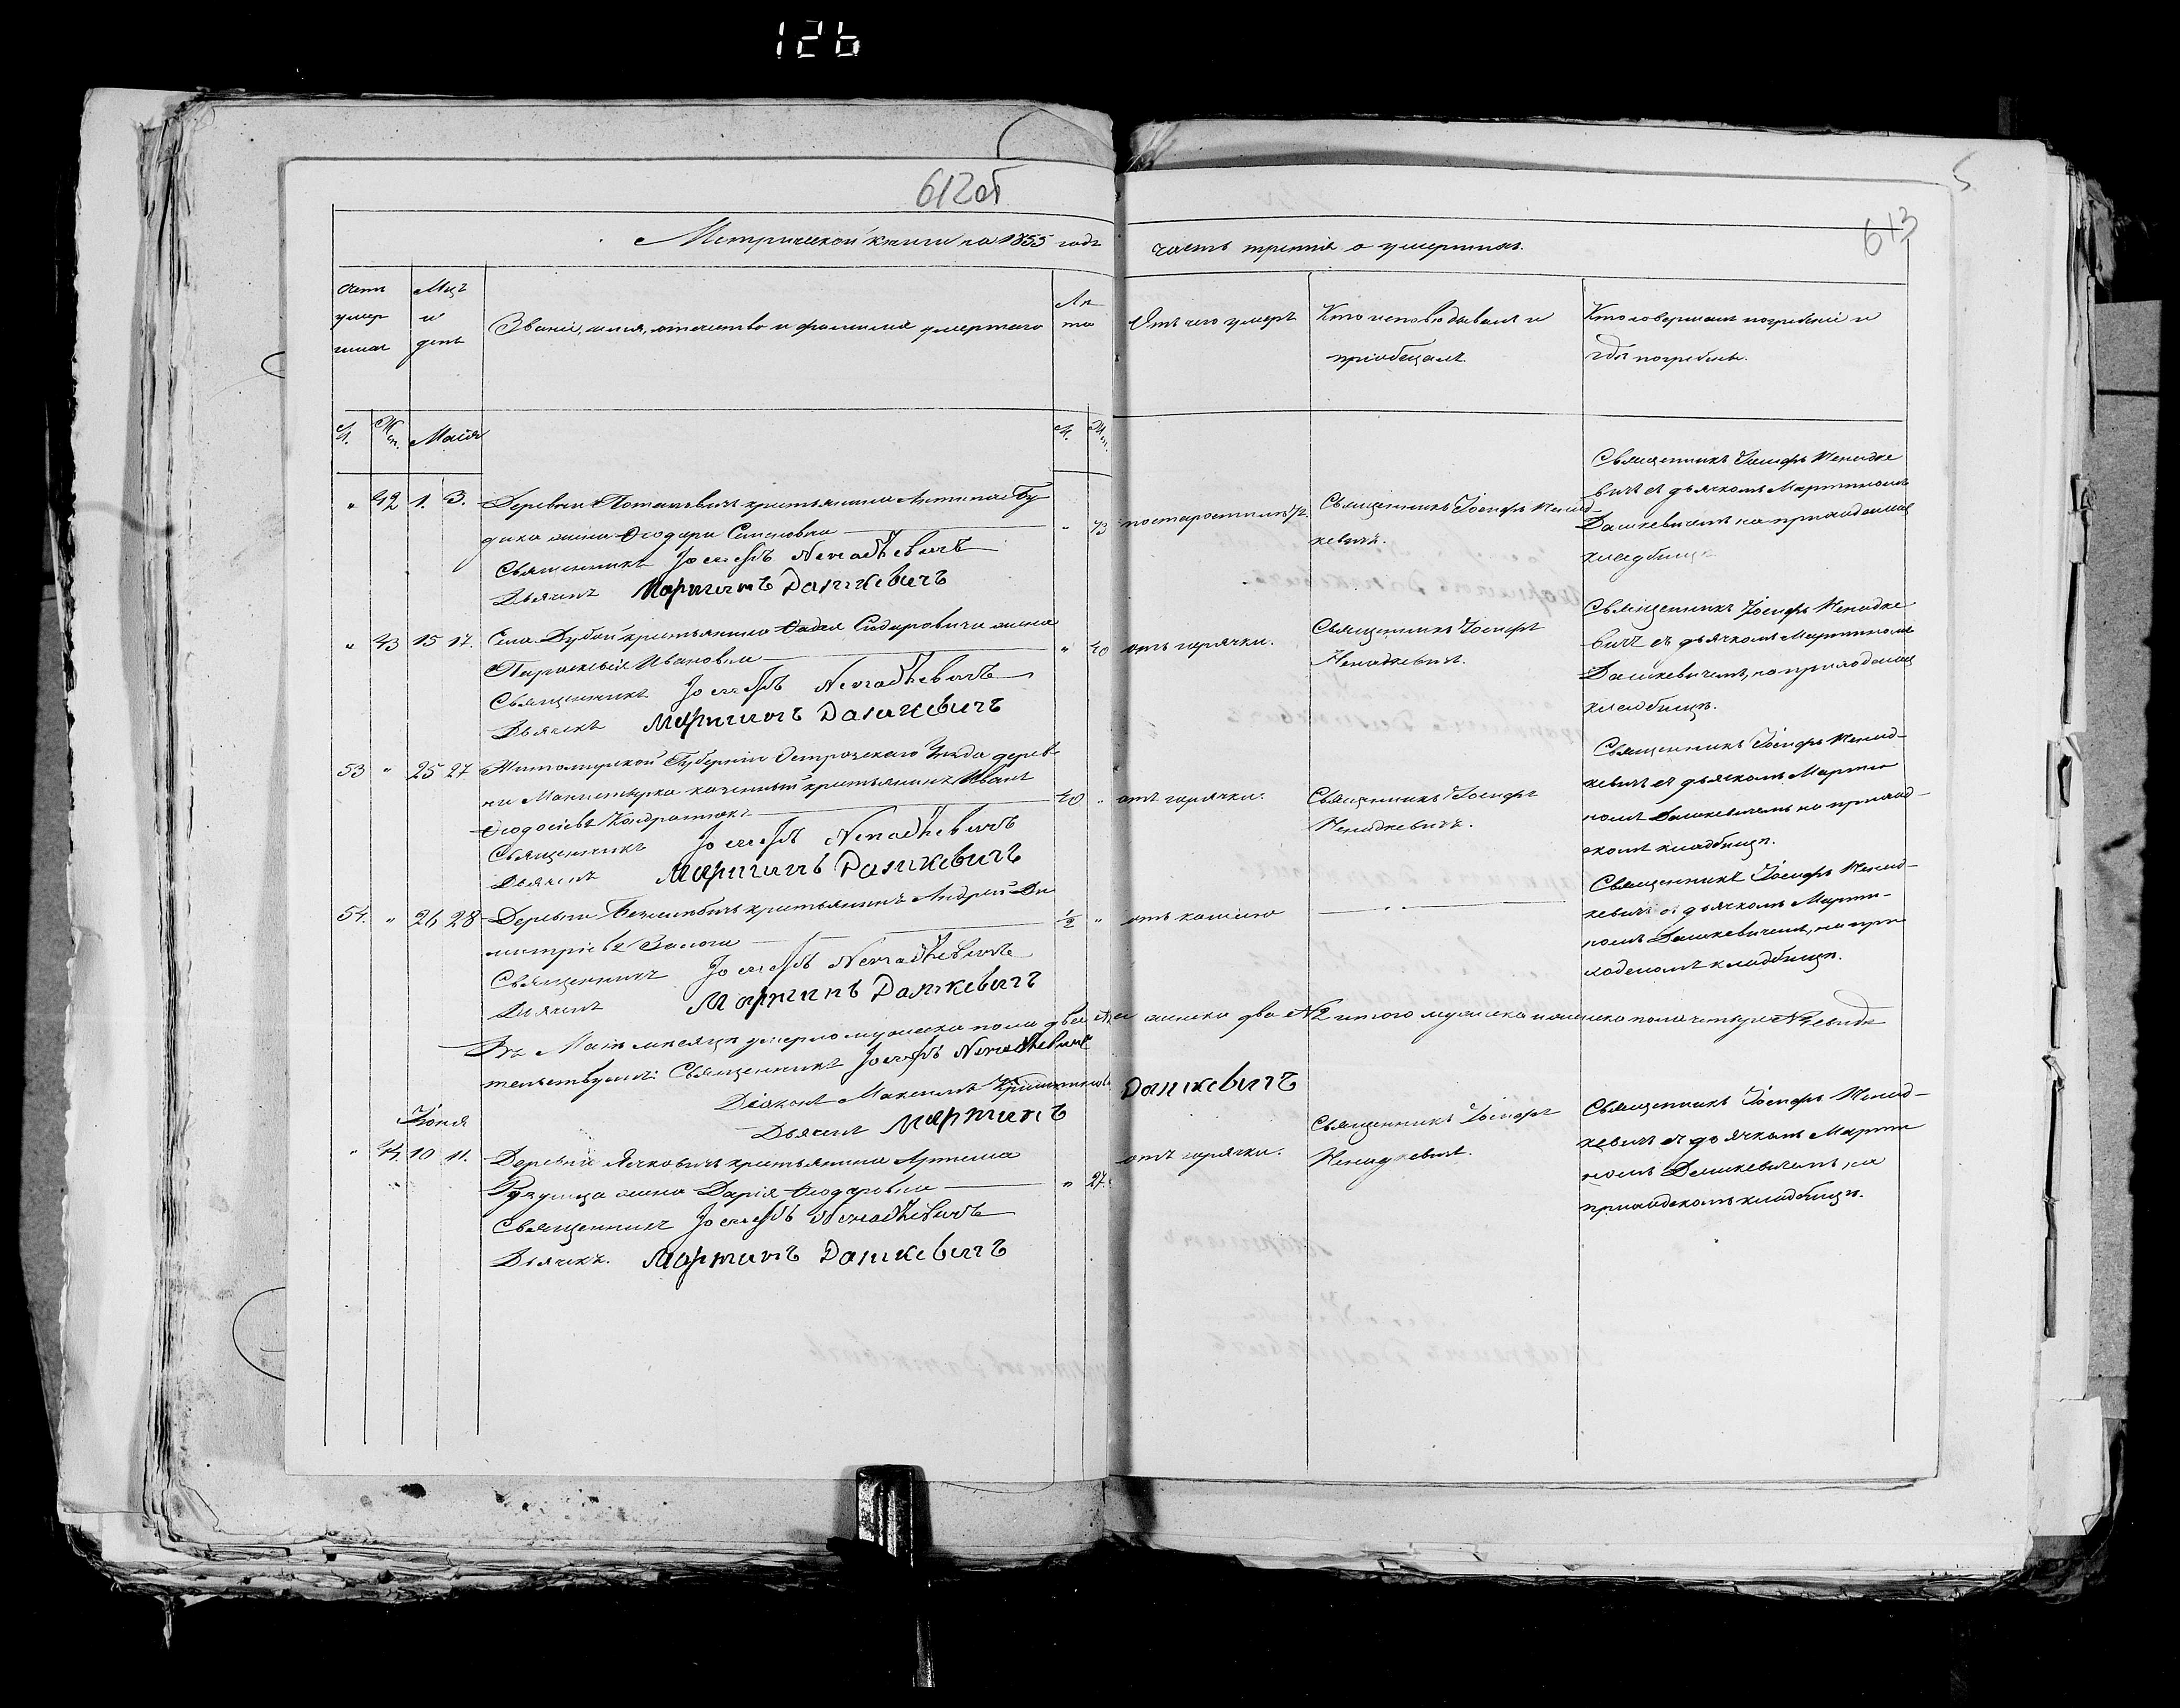 126
612об
613
Метрической книги на 1855 годъ часть третія о умершихъ.
Счетъ умер шихъ
Мцъ и день
Званіе, имя, отчество и фамилія умершаго
Лѣ та
Отъ чего умеръ
Кто исповѣдывалъ и пріобщалъ.
Кто совершалъ погребеніе и гдѣ погребены.
М. Жен. Маія М. Жен.
" 42 1. 3. Деревни крестьянина Антипа Бу
дика жена Ѳеодора
Священникъ Іосифъ Ненадкевичъ
Дьячекъ Мартинъ Дашкевичъ
" 73 по старости лѣтъ.
Священникъ Іосифъ Ненад-
кевичъ.
Священникъ Іосифъ Ненадке
вичъ съ дьячкомъ Мартиномъ
Дашкевичемъ на приходскомъ
кладбищѣ
" 43 15 17. Села Дубой крестьянина Сидоровича жена
Параскевія Ивановна
Священникъ Іосифъ Ненадкевичъ
Дьячекъ Мартинъ Дашкевичъ
" 40 отъ горячки.
Священникъ Іосифъ
Ненадкевичъ.
Священникъ Іосифъ Ненадке
вичъ съ дьячкомъ Мартиномъ
Дашкевичемъ, на приходскомъ
кладбищѣ.
53 " 25 27 Житомирской Губерніи Острожскаго Уѣзда дерев-
ни казенный крестьянинъ Иванъ
Ѳеодосіевъ Кондратюкъ
Священникъ Іосифъ Ненадкевичъ
Дьячекъ Мартинъ Дашкевичъ
40 " отъ горячки.
Священникъ Іосифъ
Ненадкевичъ.
Священникъ Іосифъ Ненад-
кевичъ съ дьячкомъ Марти
номъ Дашкевичемъ на приход-
скомъ кладбищѣ.
54. " 26 28 Деревни крестьянинъ Андрей Ди
митріевъ Залога
Священникъ Іосифъ Ненадкевичъ
Дьячекъ Мартинъ Дашкевичъ
½ " отъ кашлю
Священникъ Іосифъ Ненад-
кевичъ съ дьячкомъ Марти-
номъ Дашкевичемъ, на при
ходскомъ кладбищѣ.
Въ Маіѣ мѣсяцѣ умерло мужеска пола два женска два №2 итого мужеска и женска пола четыре №4 свидѣ
тельствуемъ: Священникъ Іосифъ Ненадкевичъ
Діаконъ Максимъ
Дьячекъ Мартинъ Дашкевичъ
Іюня
" 44. 10 11. Деревни Ячковичъ крестьянина Артема
жена Дарія Ѳеодоровна
Священникъ Іосифъ Ненадкевичъ
Дьячекъ. Мартинъ Дашкевичъ
" 27. отъ горячки.
Священникъ Іосифъ
Ненадкевичъ.
Священникъ Іосифъ Ненад-
кевичъ съ дьячкомъ Марти
номъ Дашкевичемъ, на
приходскомъ кладбищѣ.